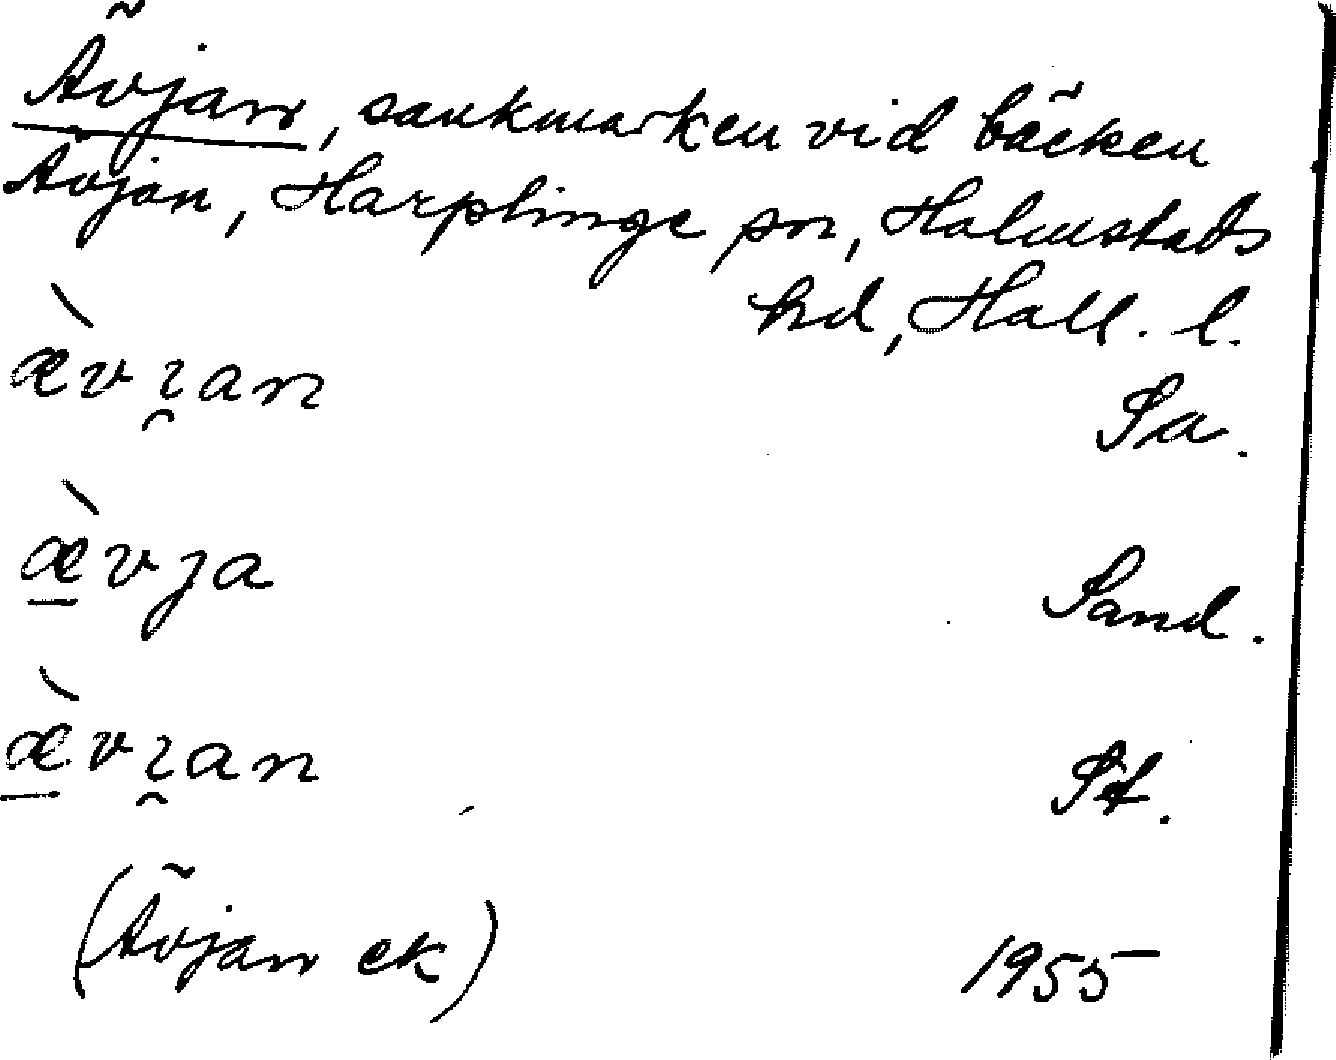 Ävjan, sankmarken vid bäcken
Ävjan, Harplinge sn, Halmstads
hd, Hall. l.
æ̀vɿ̯an Sa.
æ̠̀vja Sand.
æ̠̀vɿ̯an St.
(Ävjan ek) 1955